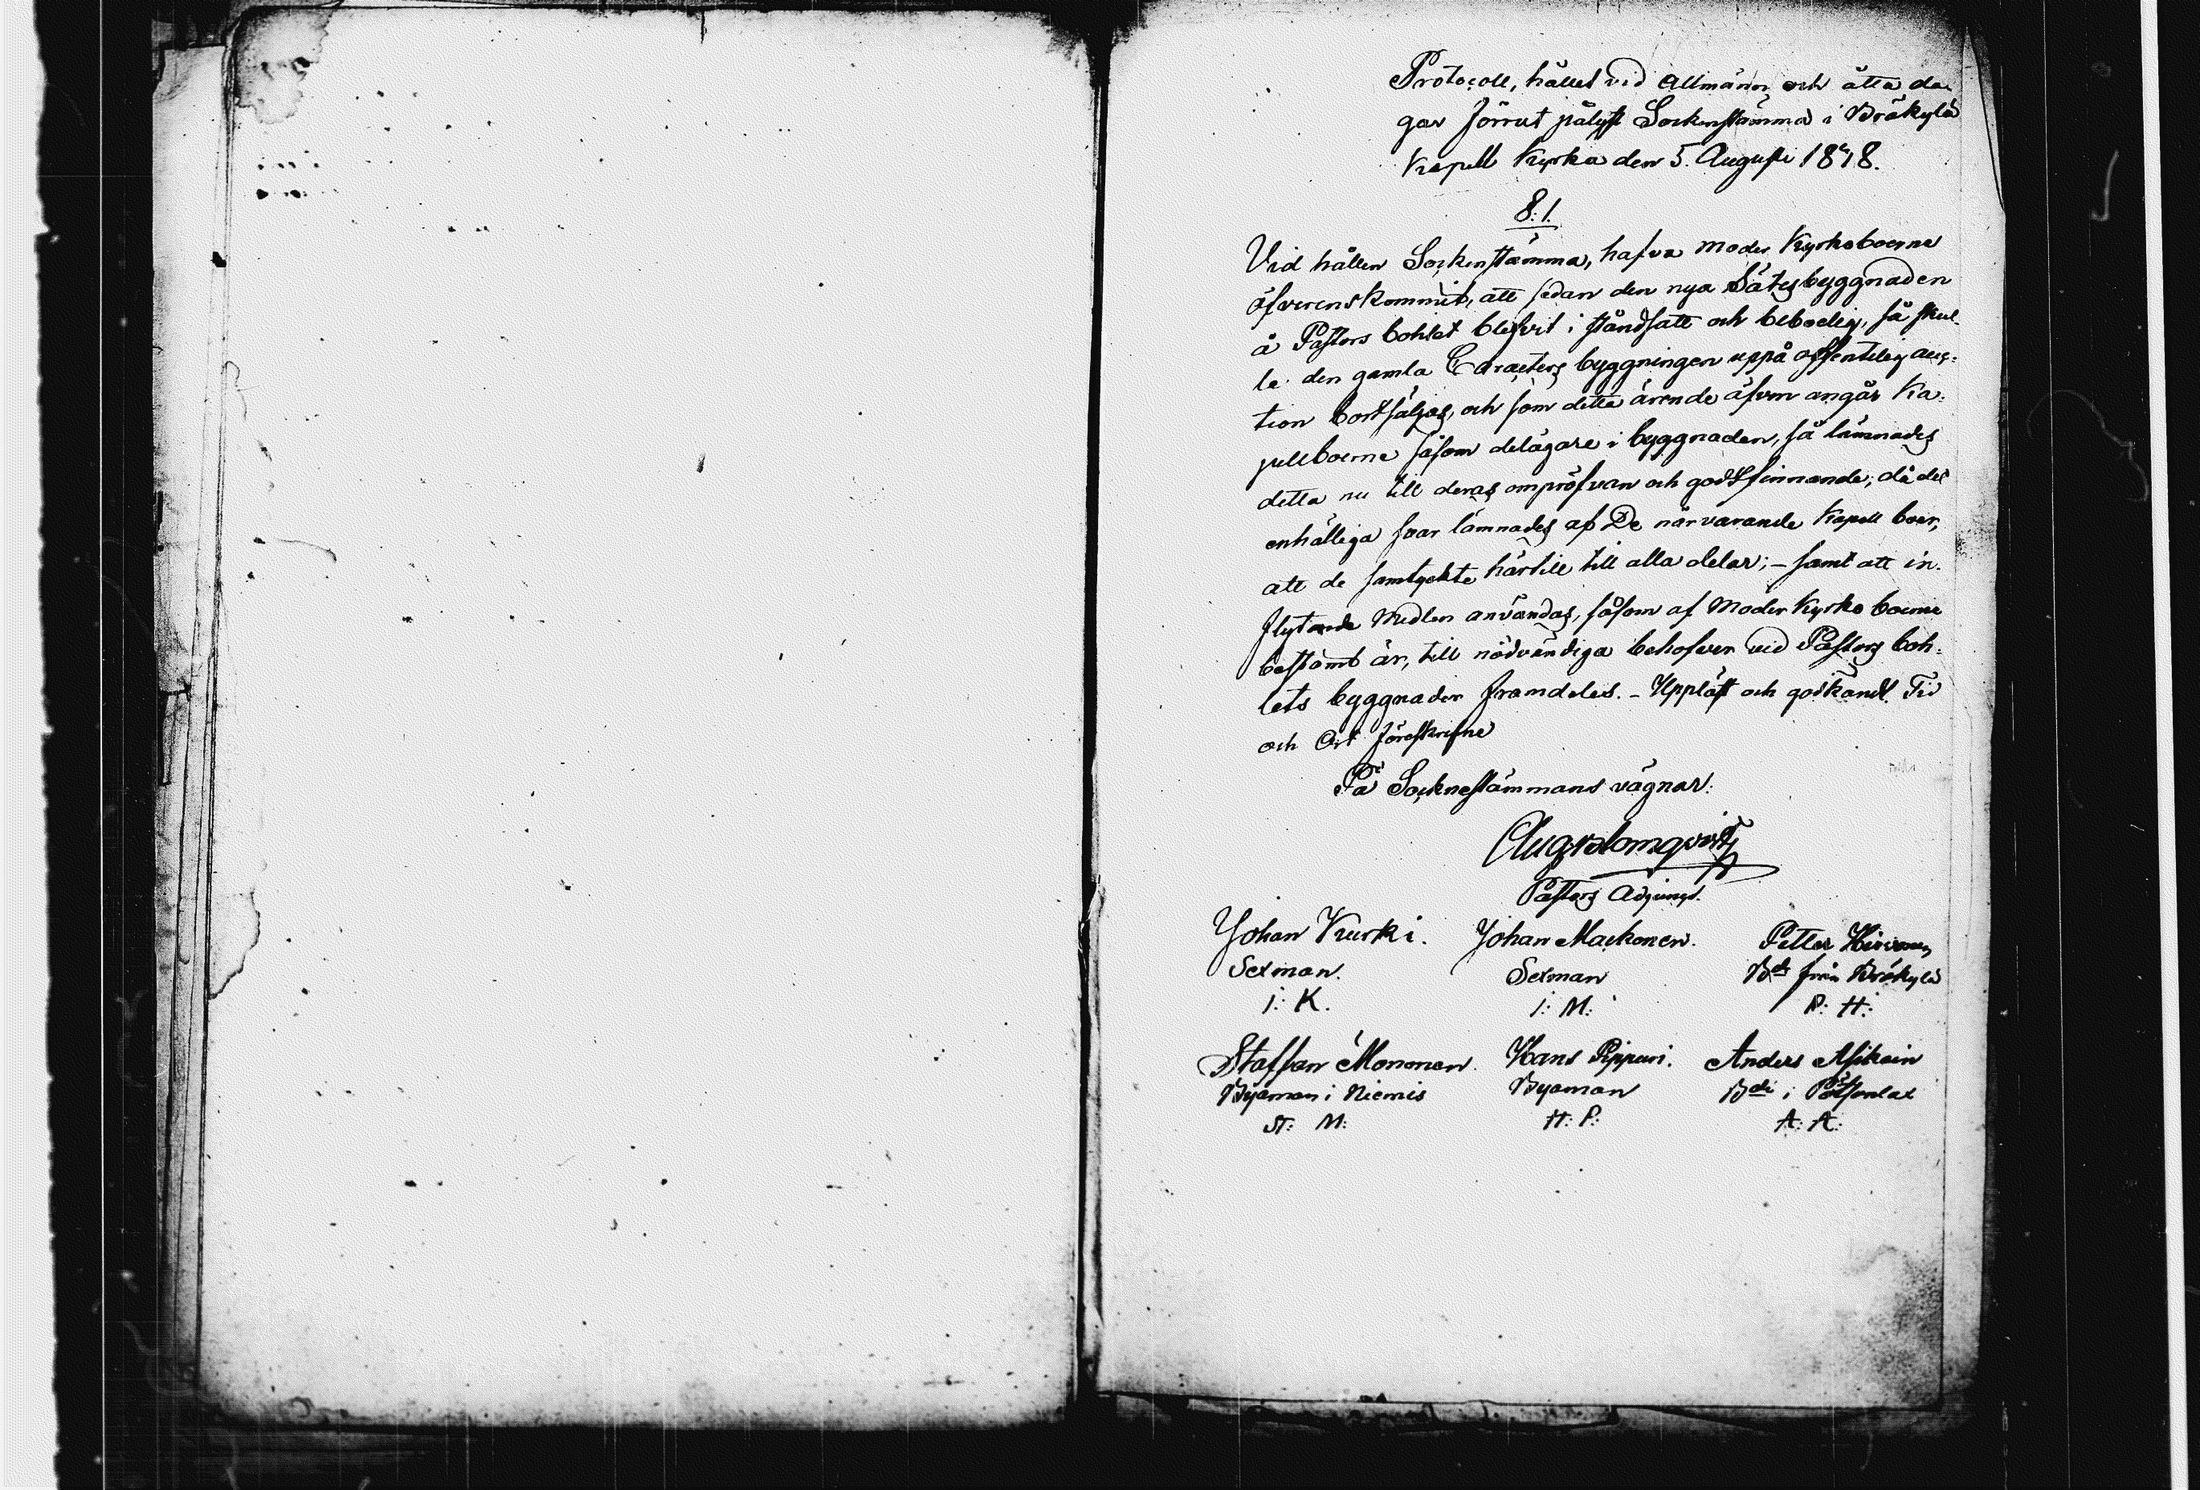 Protocoll, hållet vid Allmän och åtta da-
gar förrut pålyst Sockenstämma i Bräkylä
Kapell Kyrka den 5 Augusti 1848.
§: 1.
Vid hållen Sockenstämma, hafva Moder Kyrkoboerne
öfverenskommit, att sedan den nya Sätesbyggnaden
å Pastors bohlet blefvit i ståndsatt och beboelig, så skul-
le den gamla Caracters byggningen uppå offentelig auc-
tion bortsäljas, och som detta ärende äfven angår Ka-
pellboerne såsom delägare i byggnaden, så lämnades
detta nu till deras ompröfvan och godtfinnande, då det
enhälliga svar lämnades af De närvarande Kapell boer,
att de samtyckte härtill till alla delar; – samt att in-
flytande Medlen användas, såsom af Moder Kyrko boerne
bestämt är, till nödvändiga behofver vid Pastors boh-
lets byggnader framdeles. – Uppläst och godkändt. Tid
och Ort föreskrifne
På Socknestämmans vägnar:
Aug Blomqvist
Pastors Adjunct.
Johan Kurki. Johan Mackonen. Petter Hirvonen
Sexman. Sexman Bde från Bräkylä
J: K. J: M: P: H:
Staffan Mononen. Hans Pippuri. Anders Asikain
Byaman i Niemis Byaman Bde i
St: M: H: P: A: A: